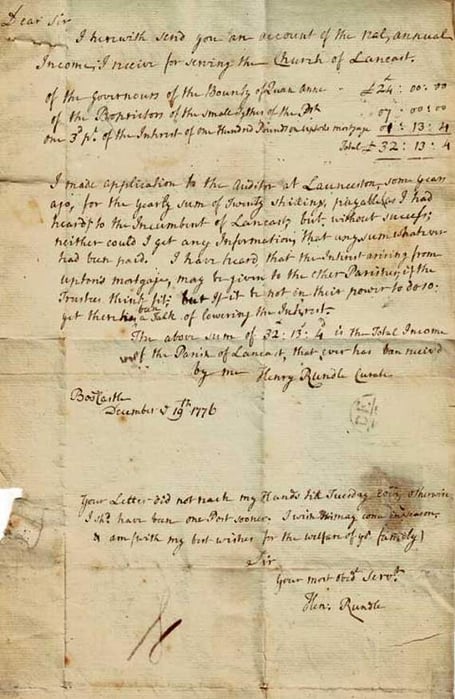 Dear Sir
I herewith send you an account of the real, annual
Income, I receive for serving the Church of Lancast.
of the Governours of the Bounty of Quan Anne - £24 : 00 : 00
of the Proprietors of the small tythes of the Psh 07 : 00 : 00
one 3d pt. of the Interest of one Hundred Pounds on uptons mortgage 01 : 13 : 4
Total £32 : 13 : 4
I made application to the Auditor at Launceston, some years
ago, for the yearly sum of Twenty shillings, payable (as I had
heard) to the Incumbent of Lancast, but without success;
neither could I get any Information, that any sum whatever
had been paid. I have heard, that the Interest arising from
upton's mortgage, may be given to the other Parishes, if the
Trustees think fit; but If it be not in their power to do so:
yet there has been a Talk of lowering the Interest.
The above sum of 32: 13s: 4d is the Total Income
of the Parish of Lancast, that ever has ban receiv'd
by me Henry Rundle Curate
BosCastle
December 19th 1776
Your Letter did not reach my Hands till Tuesday, otherwise
I shd. have ben one Post sooner. I wish this may come in season,
& am (with my best wishes for the welfare of yr. family)
Sir
Your most Obedt. Servt.
Hen: Rundle